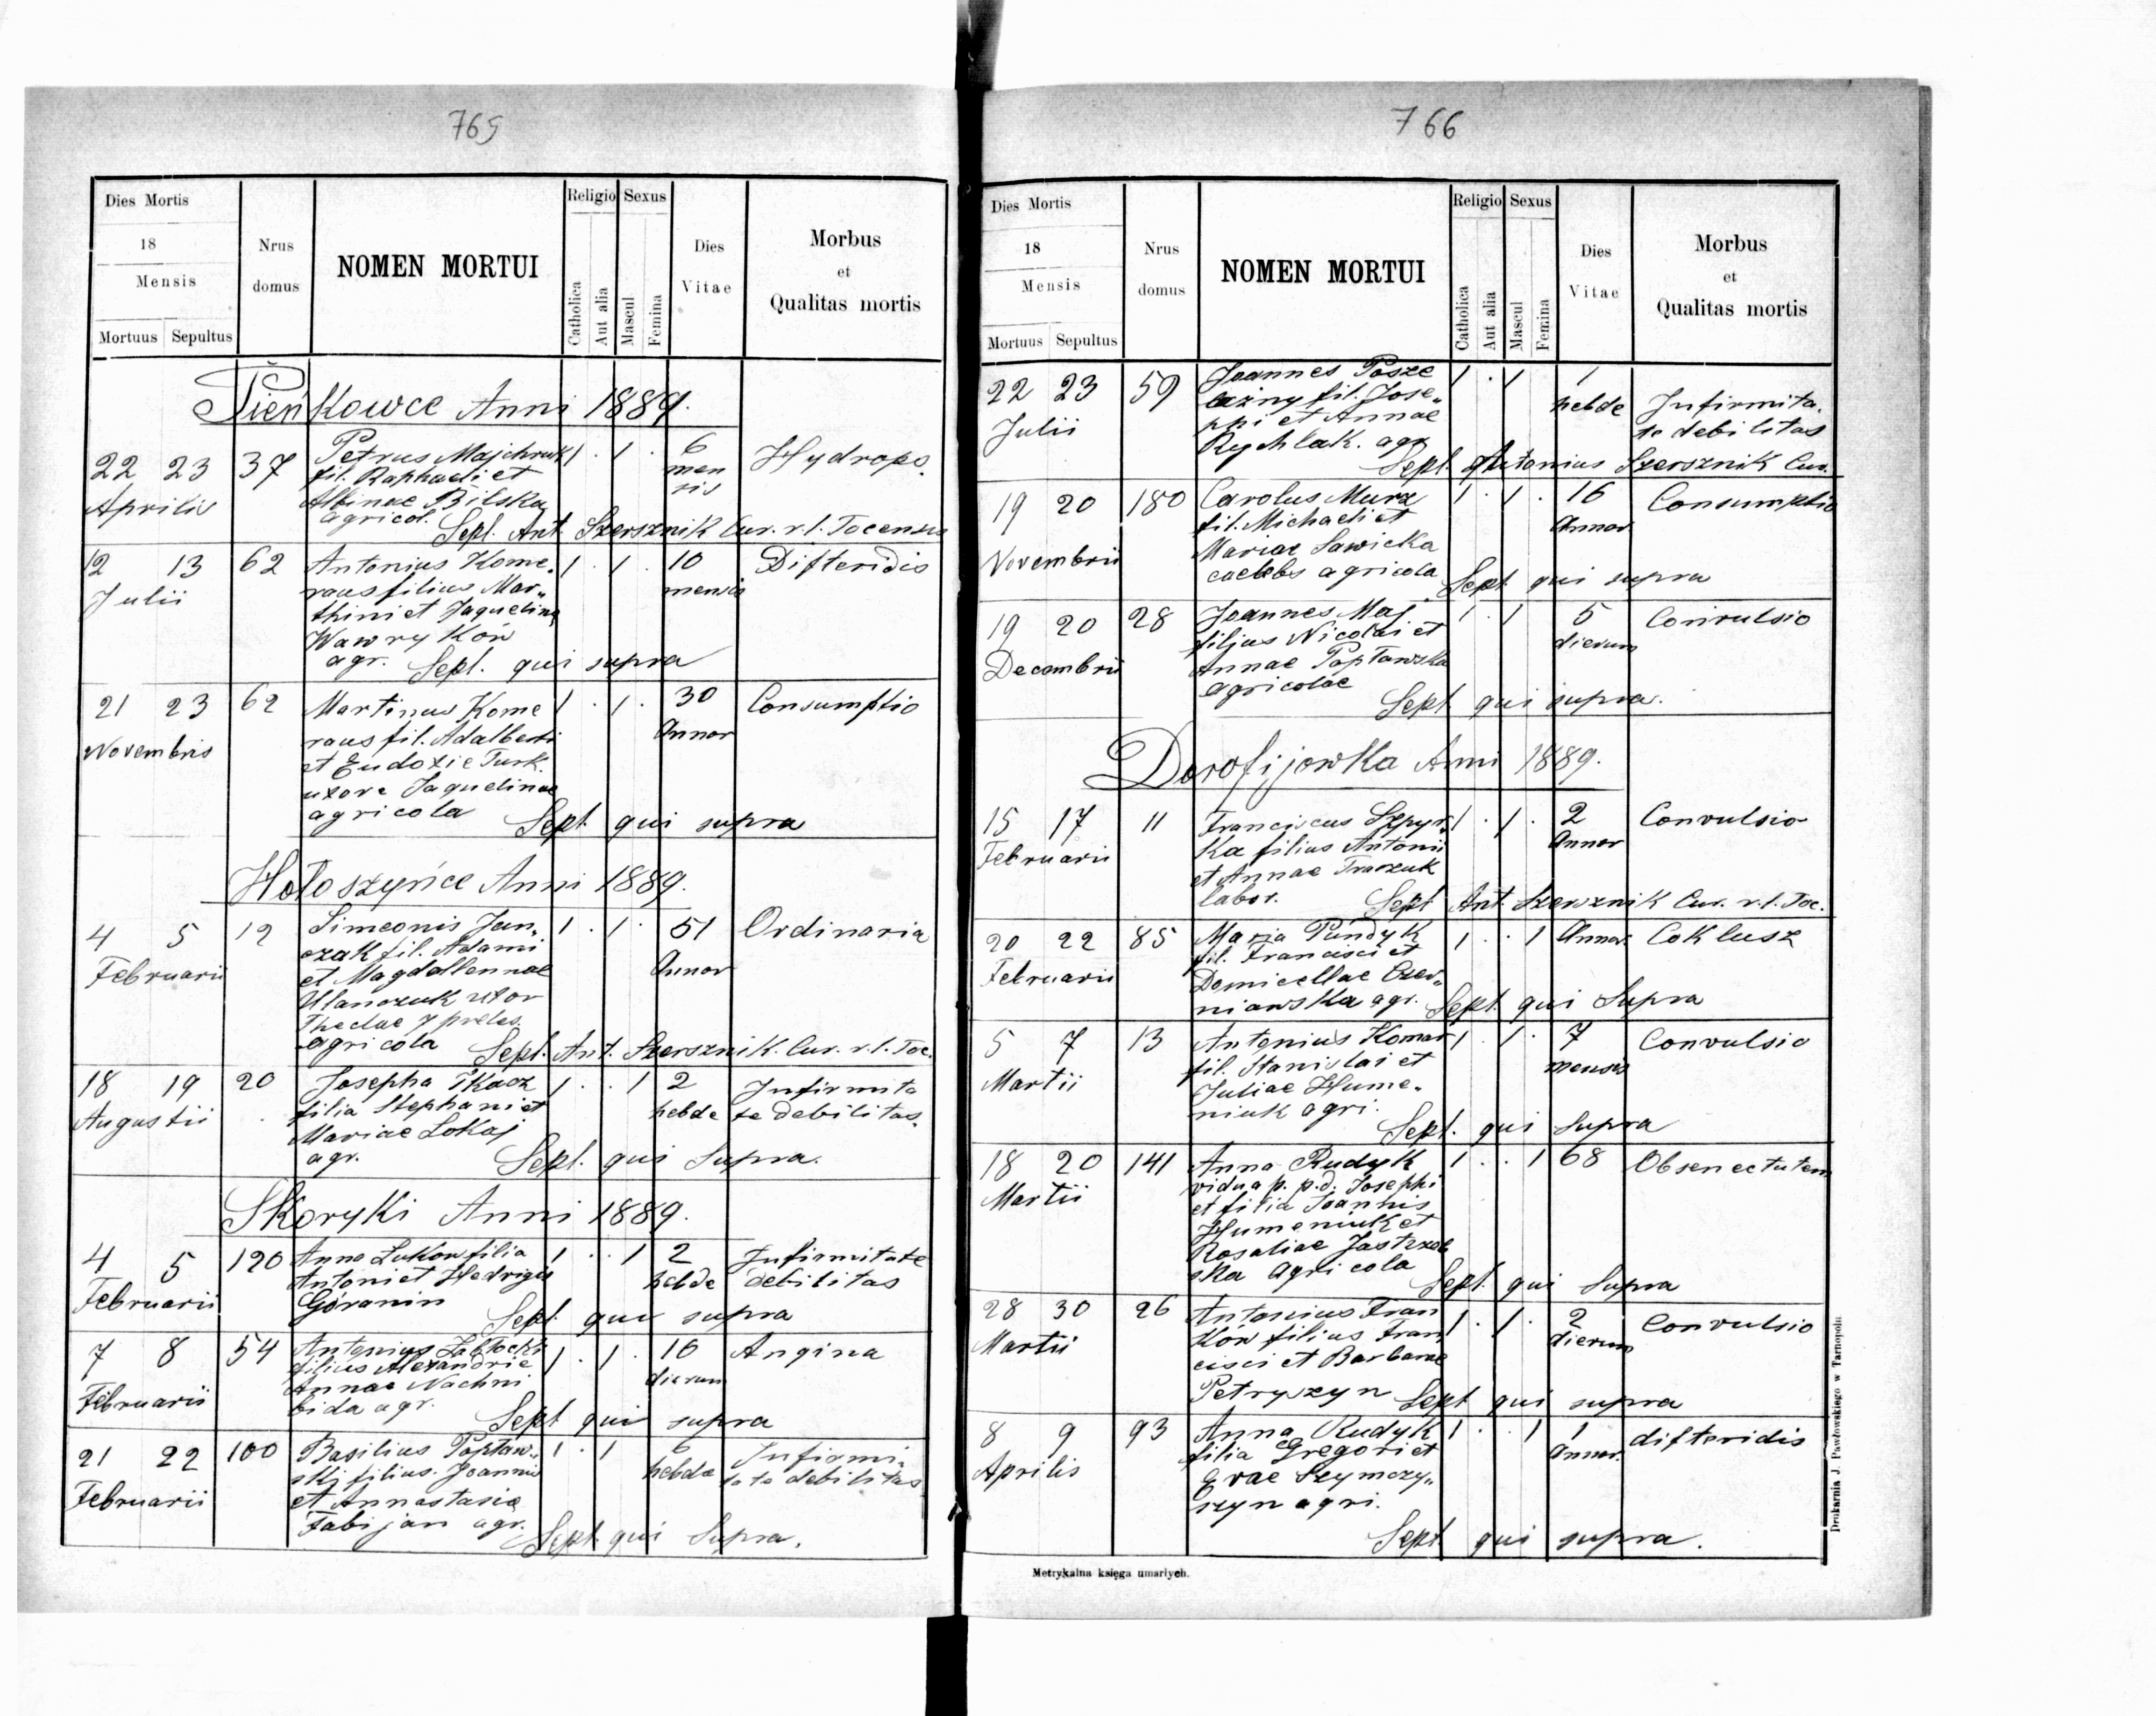 765
Dies Mortis
18
Mensis
Mortuus Sepultus
Nrus domus
NOMEN MORTUI
Religio
Catholica
Aut alia
Sexus
Mascul
Femina
Dies Vitae
Morbus et Qualitas mortis
Pieńkowce Anni 1889.
22 23 37 Petrus Majchruk 1 . 1 . 6 Hydrops.
Aprilis fil. Raphaeli et mensis
Albinae Bilska
agricol. Sepl. Ant. Szersznik Cur. r. l. Tocensis
12 13 62 Antonius Kome- 1 . 1 . 10 Difteridis
Julii raus filius Mar„ mensis
thini et Jaquelina
Wawryków
agr. Sepl. qui supra
21 23 62 Martinus Kome 1 . 1 . 30 Consumptio
Novembris raus fil. Adalberti Annor
et Eudoxie Turk.
uxore Jaquelinae
agricola Sept. qui supra
Hołoszyńce Anni 1889.
4 5 12 Simeonis Jan„ 1 . 1 . 51 Ordinaria
Februarii czak fil. Adami Annor
et Magdallennae
Ulanczuk uxor
Theclae 7 proles.
agricola Sepl. Ant. Szersznik. Cur. r. l. Toc.
18 19 20 Josepha Tkacz 1 . . 1 2 Infirmita
Augustii filia Stephani et hebde te debilitas.
Mariae Lokaj
agr. Sept. qui Supra.
Skoryki Anni 1889.
4 5 120 Anna Lukow filia 1 . . 1 2 Infirmitate
Februarii Antoni et Hedvigis hebde debilitas
Góranin Sept. qui supra
7 8 54 Antonius Zabłocki 1 . 1 . 10 Angina
Februarii filius Alexandrie dierum
Annae Nachni
bida agr. Sept qui supra
21 22 100 Basilius Popław„ 1 . 1 6 Infirmi-
Februarii skij filius. Joannis hebde tate debilitas
et Annastasia
Fabijan agr.
Sept. qui Supra.
766
Dies Mortis
18
Mensis
Mortuus Sepultus
Nrus domus
NOMEN MORTUI
Religio
Catholica
Aut alia
Sexus
Mascul
Femina
Dies Vitae
Morbus et Qualitas mortis
22 23 59 Joannes Posze 1 . 1 1
Julii fil. Jose„ hebde Infirmita.
ppi et Annae te debilitas
Rychlak. agr
Sepl. Antonius Szersznik Cur.
19 20 180 Carolus Murz 1 . 1 . 16 Consumptio
Novembrii fil. Michaeli et Annor
Mariae Sawicka
caelebs agricola Sept qui supra
19 20 28 Joannes Maj 1 . 1 5 Convulsio
Decembrii filjus Nicolai et dierum
Annae Popławska
agricolae
Sept qui supra.
Dorofijowka Anni 1889.
15 17 11 Franciscus Szpyr„ 1 . 1 . 2 Convulsio
Februarii ka filius Antonii Annor
et Annae Traczuk
labor. Sept Ant. Szersznik Cur. r. l. Toc.
20 22 85 Maria Pundyk 1 . . 1 Annor. Coklusz
Februarii fil. Francisci et
Domicellae Czer„
niawska agr. Sept. qui Supra
5 7 13 Antonius Komar 1 . 1 . 7 Convulsio
Martii fil. Stanislai et mensis
Juliae Hume-
niuk agri.
Sept. qui Supra
18 20 141 Anna Rudyk 1 . . 1 68 Obsenectutem
Martii vidua p. p.d. Josephi
et filia Joannis
Humeniuk et
Rosaliae Jastrzeb
ska agricola Sept. qui Supra
28 30 26 Antonius Fran 1 . 1 . 2 Convulsio
Martii ków filius Fran dierum
cisci et Barbarae
Petryszyn Sept qui supra
8 9 93 Anna Rudyk 1 . . 1 1 difteridis
Aprilis filia Gregori et Annor.
Evae Szymczy„
szyn agri.
Sept qui supra.
Metrykalna księga umarłych.
Drukarnia J. Pawłowskiego w Tarnopolu